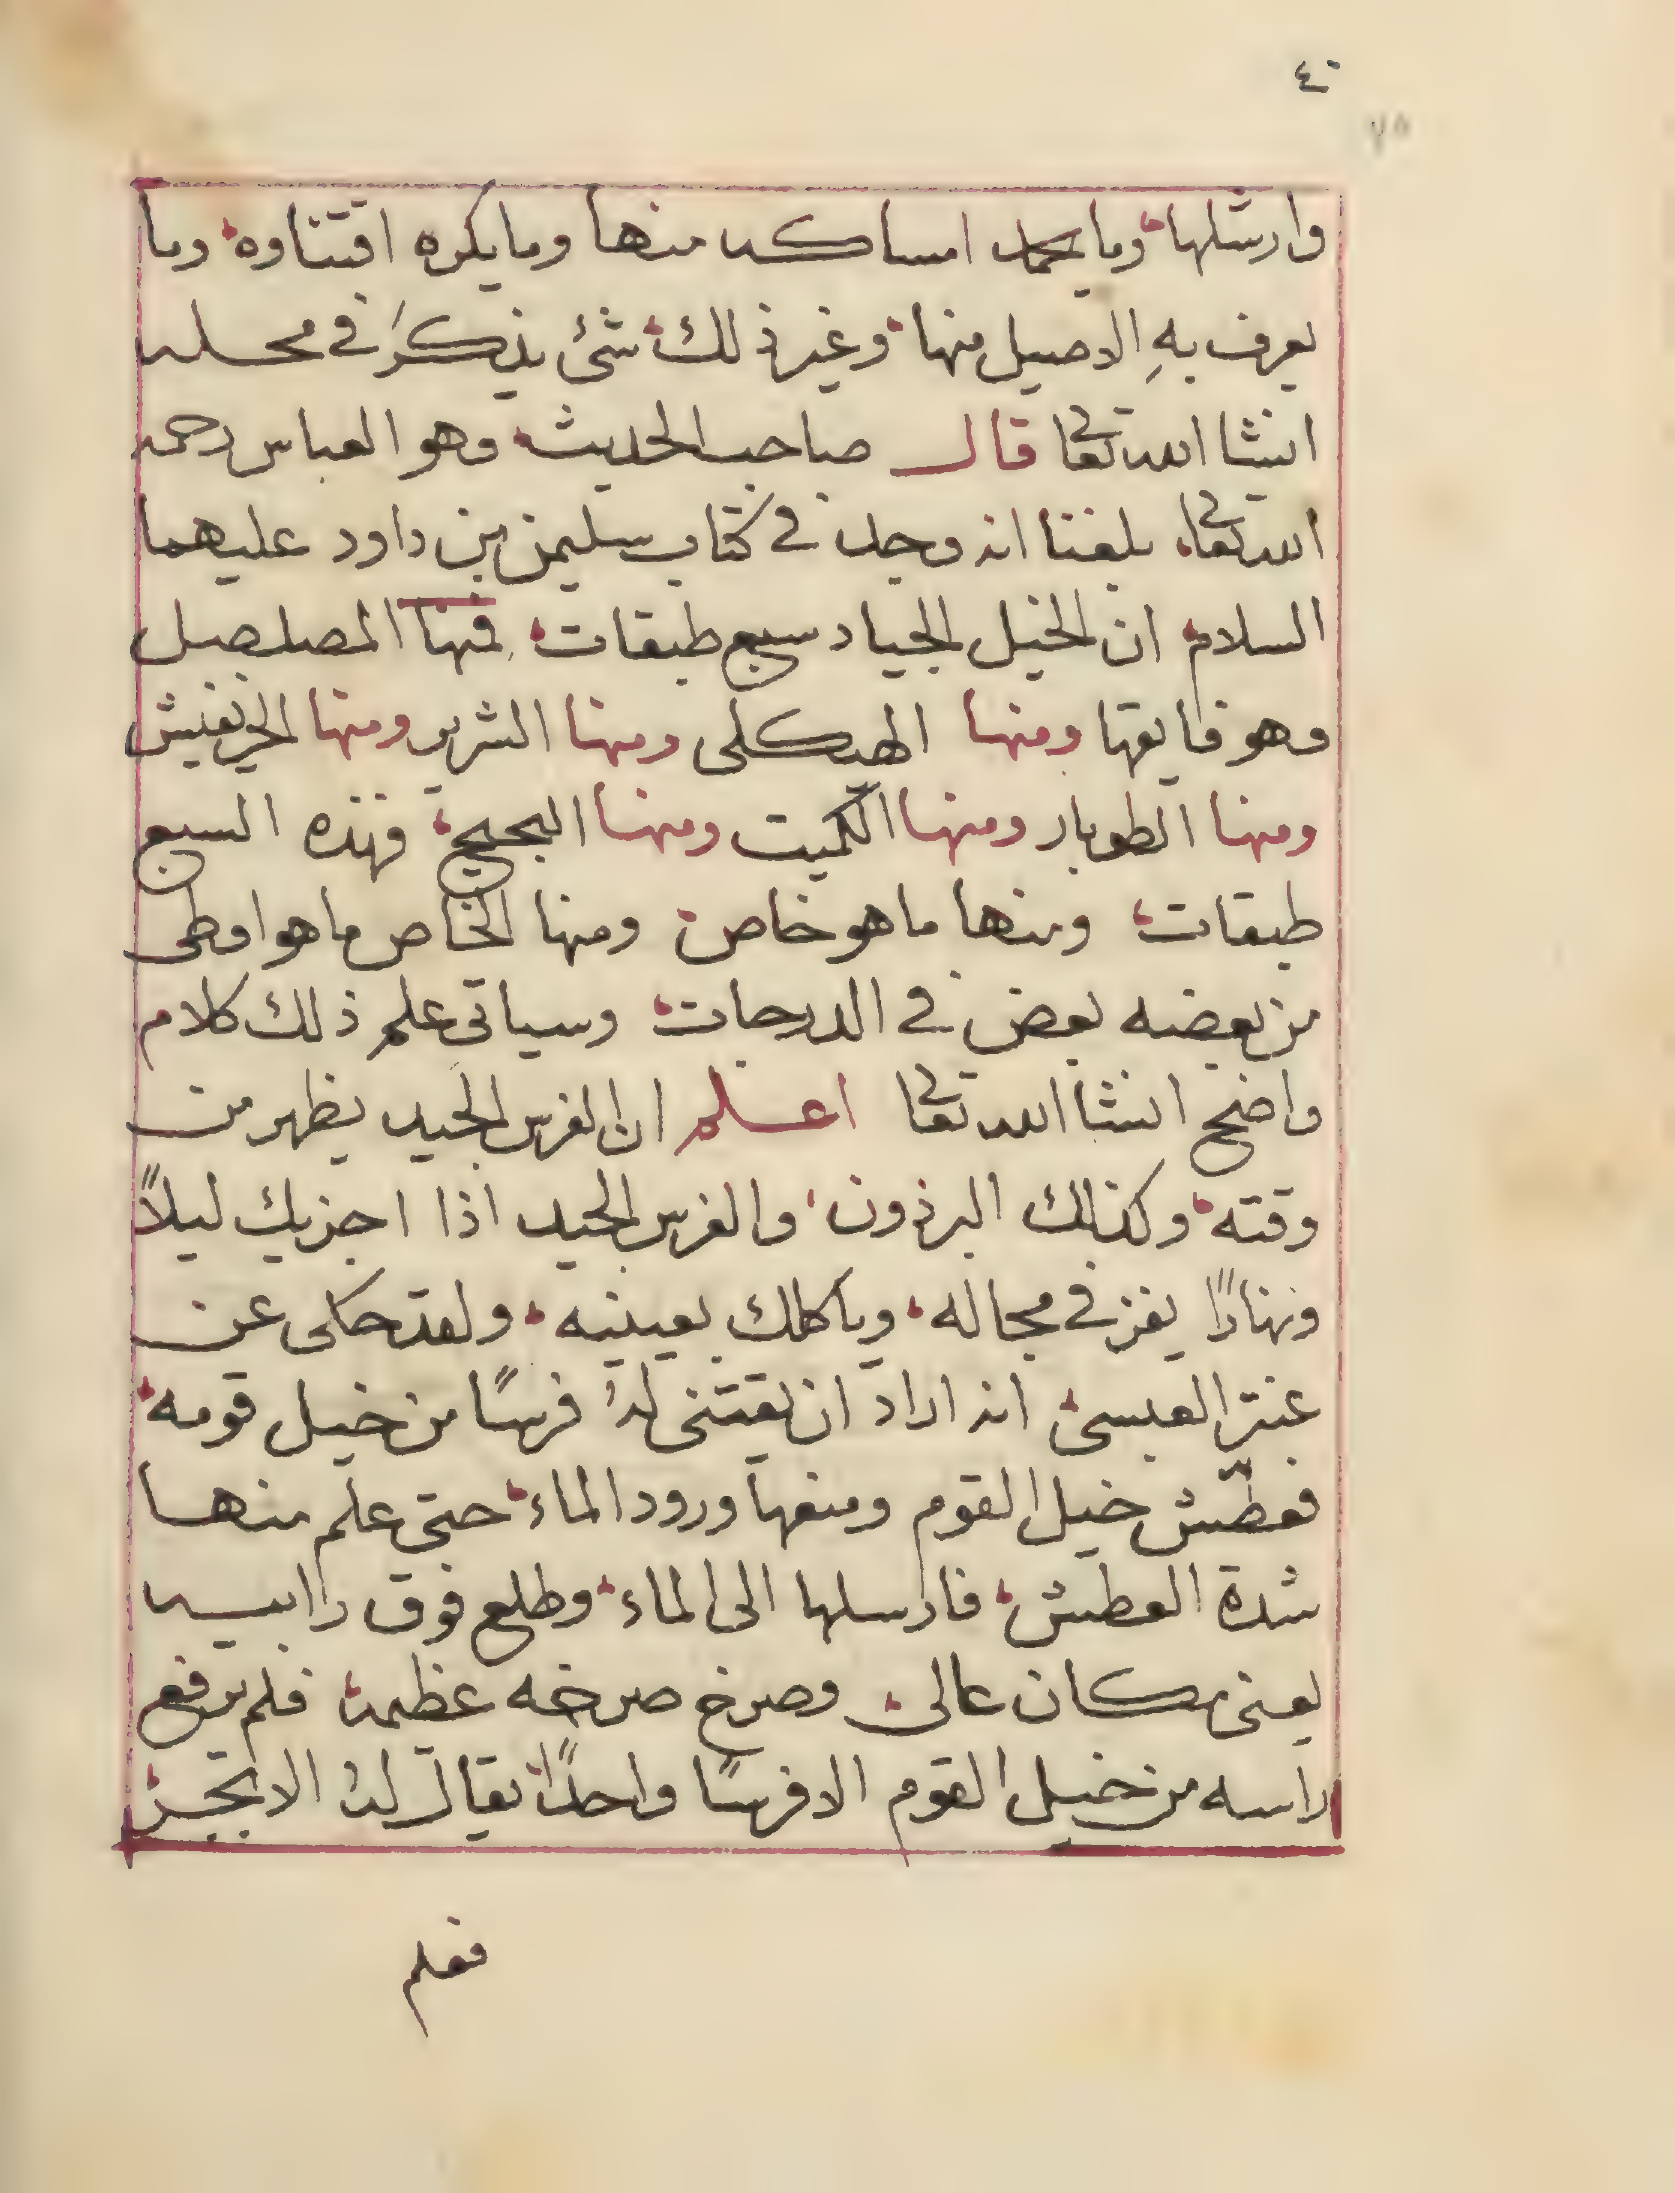 ٤٠
٧٥
وارشلها وما يحمد امساكه منها وما يكره اقتناوه وما
يعرف بهِ الاصيل منها وغير ذلك شئ يذكر في محله
انشا الله تعالى قال صاحب الحديث وهو العباس رحمه
الله تعالى بلغنا انه وجد في كتاب سليمن بن داود عليهما
السلام ان الخيل الجياد سبع طبقات فمنها المصلصل
وهو فايقها ومنها الهيكلي ومنها الشرير ومنها الخرنفيش
ومنها الطوبار ومنها الكميت ومنها البجيح فهذه السبع
طبقات ومنها ما هو خاص ومنها الخاص ما هو اوطى
من بعضه بعض في الدرجات وسياتي علم ذلك كلام
واضح انشا الله تعالى اعلم ان الفرس الجيد يظهر من
وقته وكذلك البرذون والفرس الجيد اذا اجزيك ليلاً
ونهارًا يفز في مجاله وياكلك بعينيه ولقد حكى عن
عنتر العبسي انه اراد ان يقتني لهُ فرسًا من خيل قومه
فعطّش خيل القوم ومنعها ورود الماء حتى علم منها
شدة العطش فارسلها الى الماء وطلع فوق رابيه
يعني مكان عالي وصرخ صرخه عظيمة فلم يرفع
راسه من خيل القوم الا فرسًا واحدًا يقال لهُ الابجر
فعلم